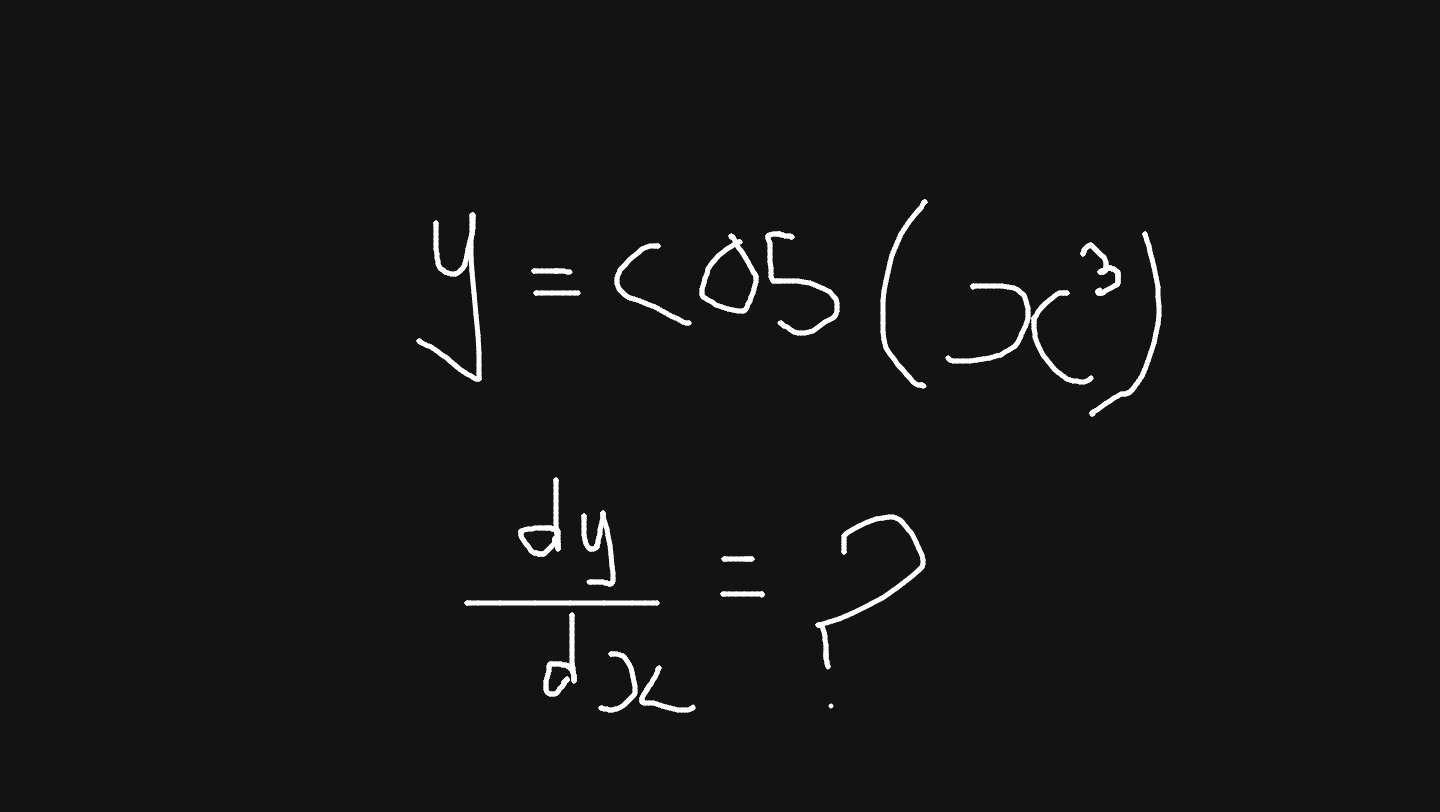 y = cos(x³)
dy/dx = ?